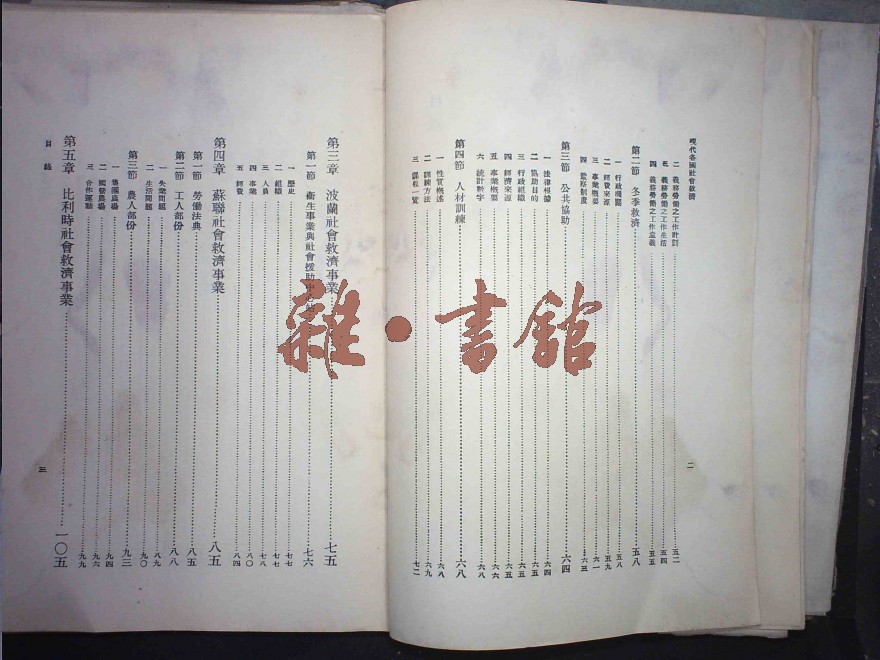 現代各國社會救濟
二 義務勞働之工作計劃 五二
三 義務勞働之工作生活 五四
四 義務勞働之工作意義 五五
第二節 冬季救濟 五八
一 行政機關 五八
二 經費來源 五九
三 事業概要 六一
四 監察制度 六三
第三節 公共協助 六四
一 法律根據 六四
二 協助目的 六五
三 行政組織 六五
四 經濟來源 六五
五 事業概要 六六
六 統計數字 六八
第四節 人材訓練 六八
一 性質概述 六八
二 訓練方法 六九
三 課程一覽 七二
二
第三章 波蘭社會救濟事業 七五
第一節 衞生事業與社會援助中心站 七六
一 歷史 七七
二 組織 七七
三 人員 七八
四 事業 八〇
五 經費 八四
第四章 蘇聯社會救濟事業 八五
第一節 勞働法典 八五
第二節 工人部份 八八
一 失業問題 八九
二 生活問題 九〇
第三節 農人部份 九三
一 集團農場 九四
二 國營農場 九六
三 合作運動 九九
第五章 比利時社會救濟事業 一〇五
目錄
三
雜·書館